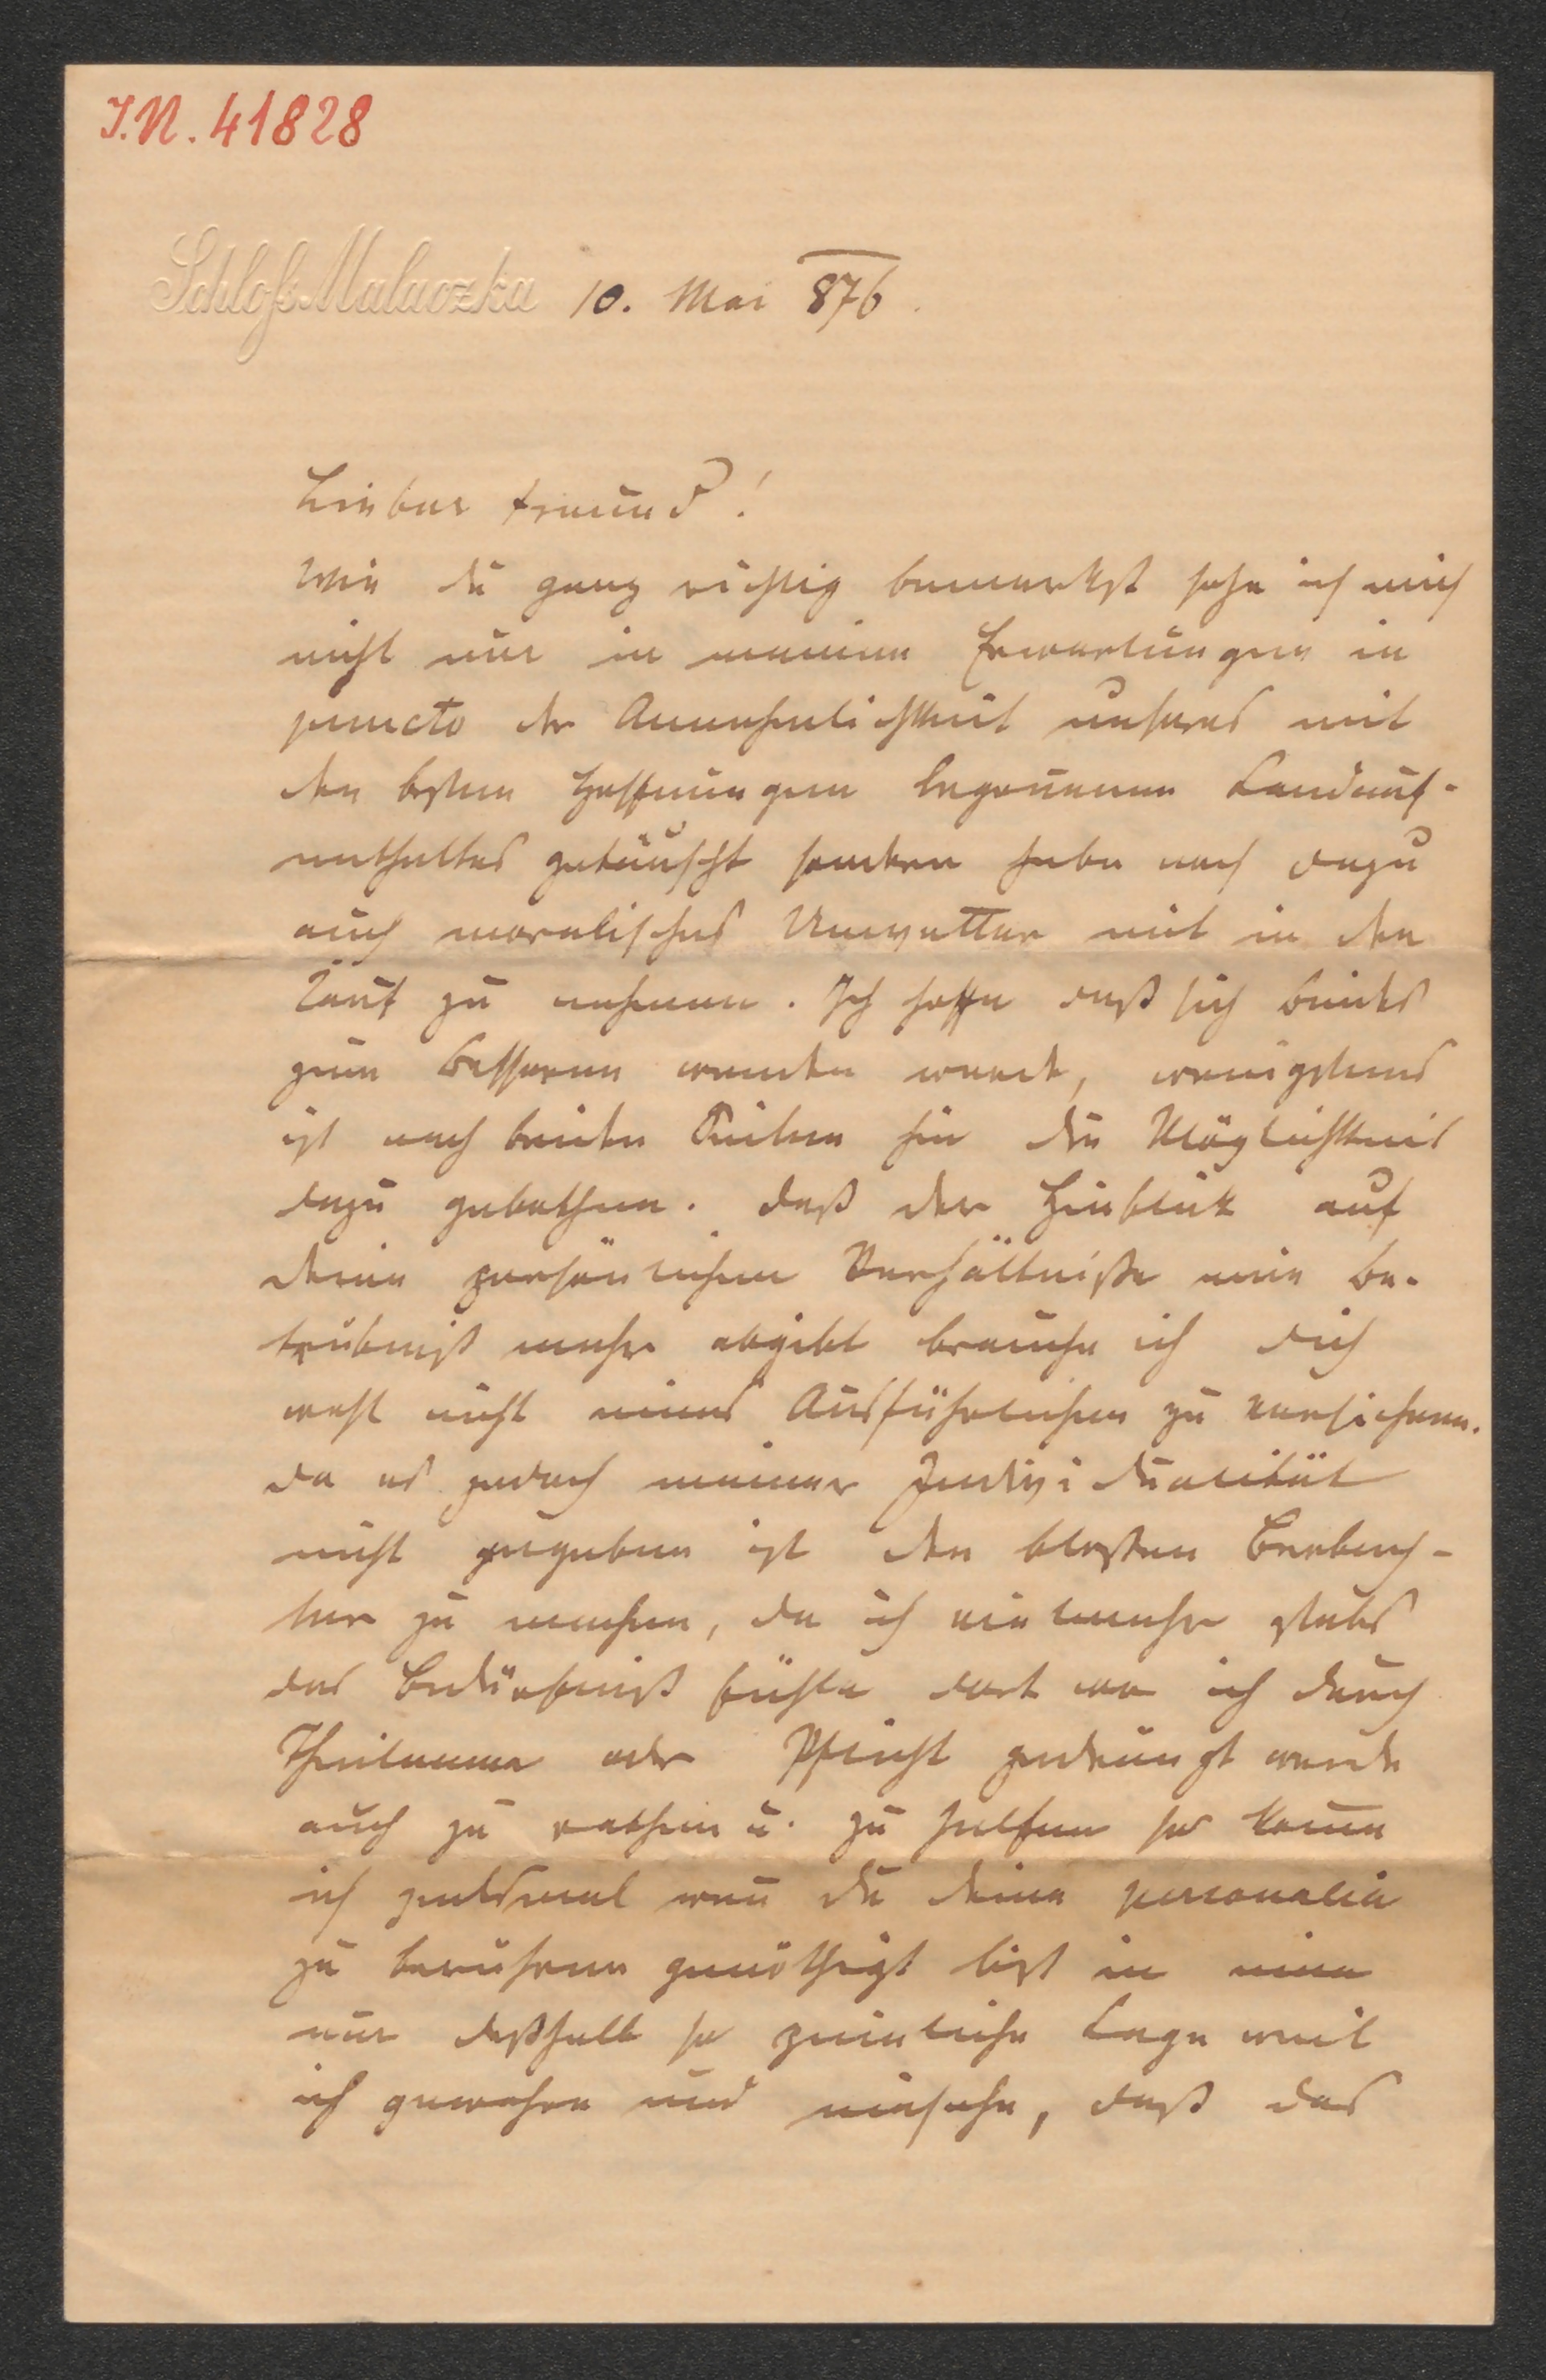 I.N. 41828
Schloß Malaczka 10. Mai 876.
Lieber Freund!
Wie du ganz richtig bemerkst sehe ich mich
nicht nur in meinen Erwartungen in
puncto der Annehmlichkeit unseres mit
den besten Hoffnungen begonnenen Landauf-
enthaltes getäuscht sondern habe noch dazu
auch moralisches Unwetter mit in den
Kauf zu nehmen. Ich hoffe daß sich beides
zum Besseren wenden werde, wenigstens
ist nach beiden Seiten hin die Möglichkeit
dazu gebothen. Daß der Hinblick auf
deine persönlichen Verhältniße mir Be-
trübniß mehr abgibt brauche ich dich
wohl nicht eines Ausführlichen zu versichern.
Da es jedoch meiner Individualität
nicht gegeben ist den bloßen Beobach-
ter zu machen, da ich vielmehr stets
das Bedürfniß fühle dort wo ich durch
Theilname oder Pflicht gedrängt werde
auch zu rathen u. zu helfen so komme
ich jedesmal wenn du deine personalia
zu berühren genöthigt bist in eine
nur deßhalb so peinliche Lage weil
ich gewahre und einsehe, daß das